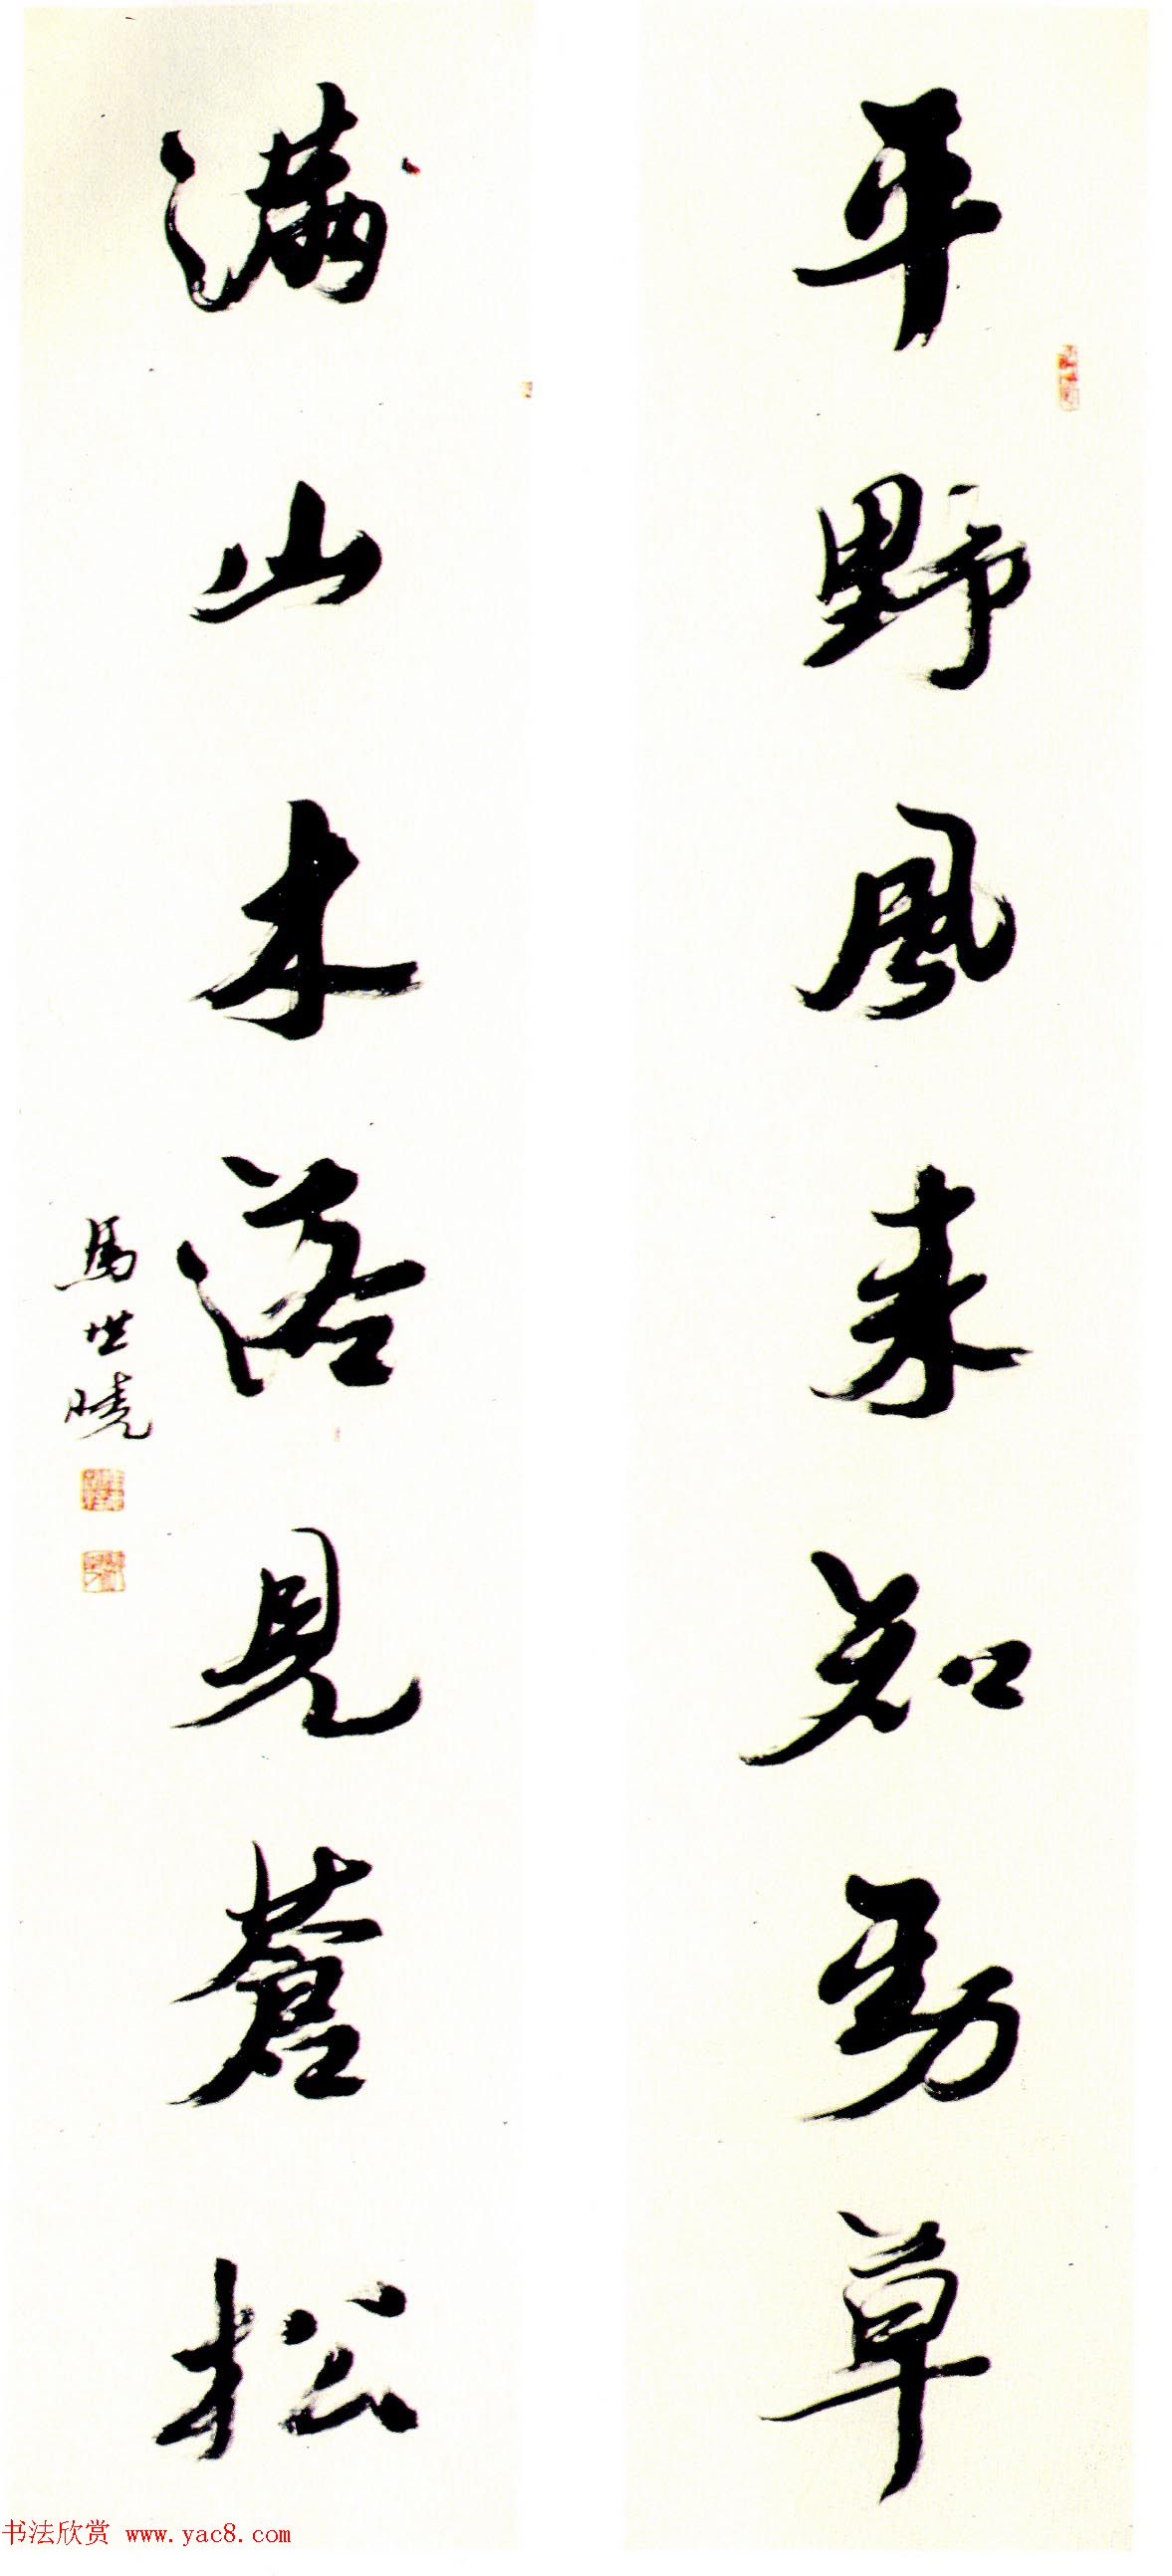 平野風来知勁草
满山木落見蒼松
馬世曉
书法欣赏 www.yac8.com